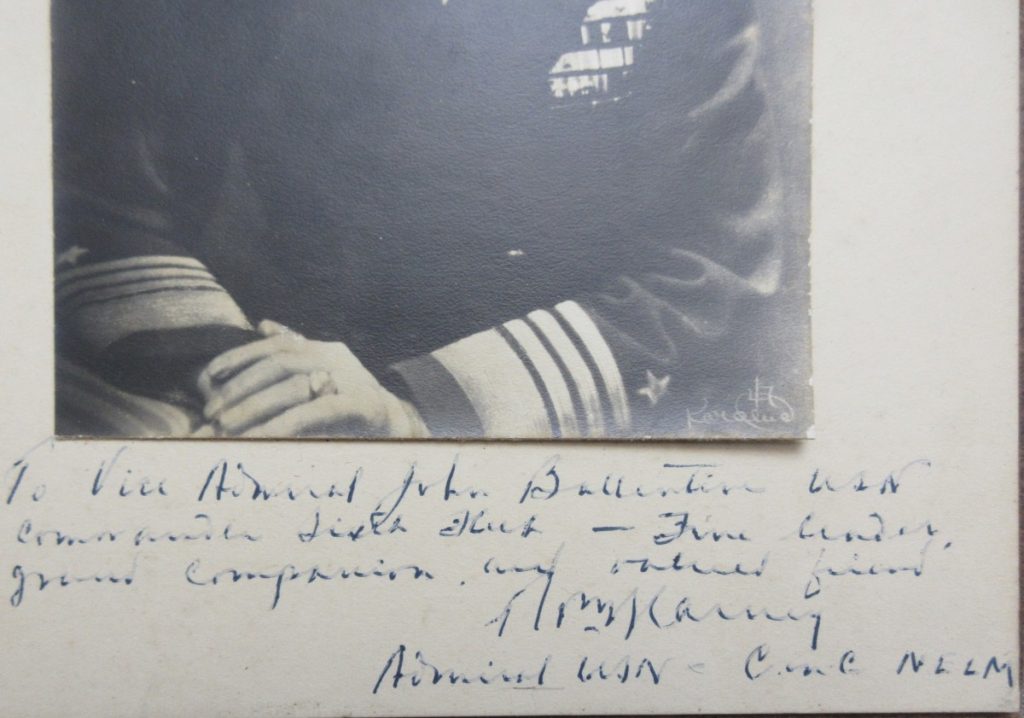 47
To Vice Admiral John Ballentine USN
commander Sixth Fleet — Fine leader,
grand companion, and valued friend
RBCarney
Admiral USN - CinC NELM